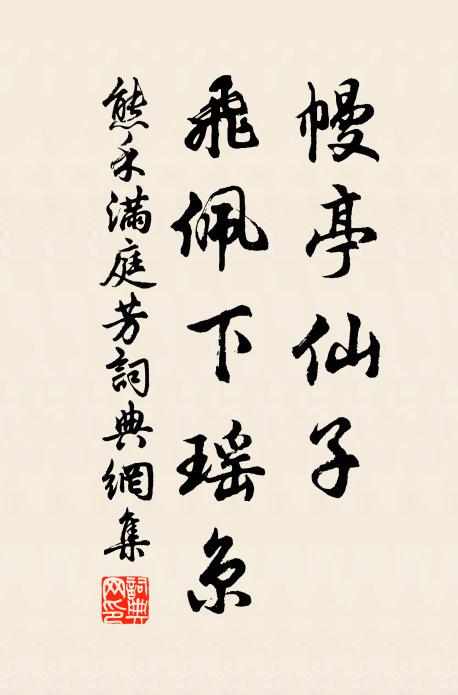 幔亭仙子
飛佩下瑶京
熊禾滿庭芳詞典網集
詞典网印